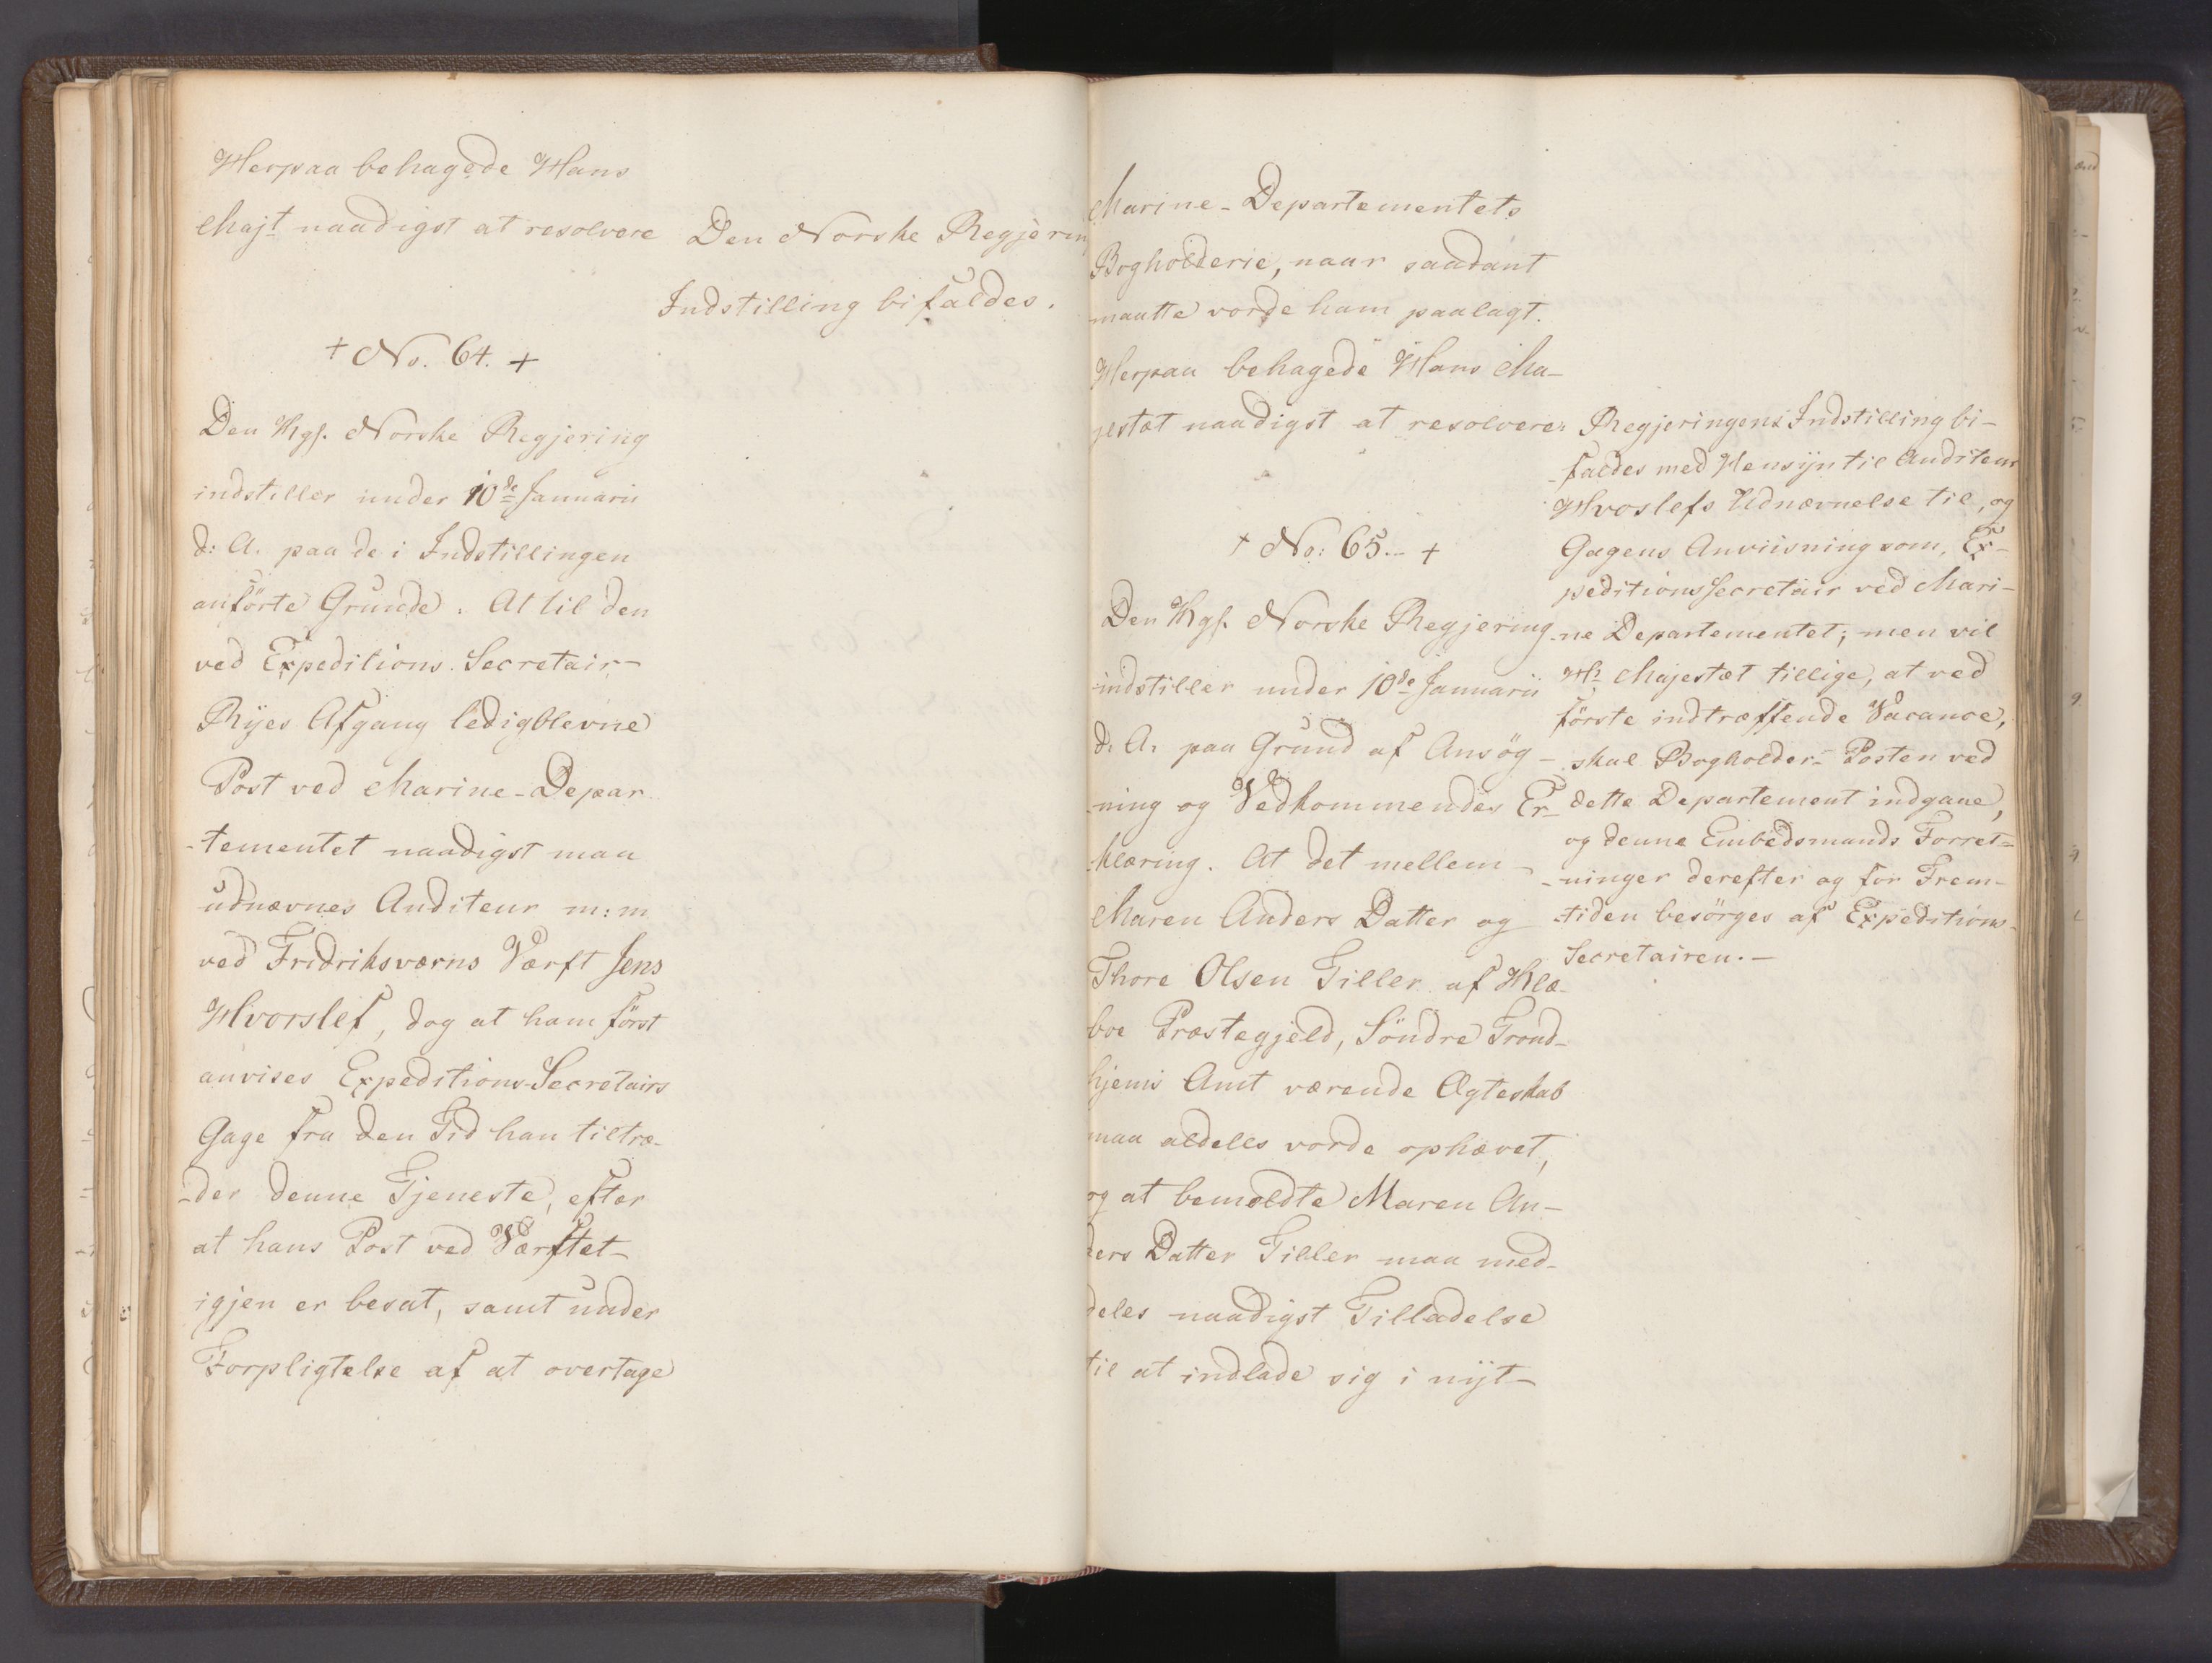 Herpaa behagede Hans
Majt naadigst at resolvere
Den Norske Regjering
Indstilling bifaldes.
+ No. 64. +
Den Kgs. Norske Regjering
indstiller under 10de Januarii
d: A. paa de i Indstillingen
anførte Grunde: At til den
ved Expeditions-Secretair
Ryes Afgang ledigblevne
Post ved Marine-Depar
-tementet naadigst maa
udnævnes Auditeur m:m.
ved Fridriksværns Værft Jens
Hvorslef, dog at ham først
anvises Expeditions-Secretairs
Gage fra den Tid han tiltræ-
-der denne Tjeneste, efter
at hans Post ved Værftet-
igjen er besat, samt under
Forpligtelse af at overtage
Marine-Departementets
Bogholderie, naar saadant
maatte vorde ham paalagt.
Herpaa behagede Hans Ma-
jestæt naadigst at resolvere:
Regjeringens Indstilling bi-
-faldes med Hensyn til Auditeur
Hvoslefs Udnævnelse til, og
Gagens Anviisning som, Ex-
peditionsSecretair ved Mari-
-ne Departementet; men vil
Hs Majestæt tillige, at ved
første indtræffende Vacance,
skal Bogholder-Posten ved
dette Departement indgaae,
og denne Embedsmands Forret-
-ninger derefter og for Frem-
-tiden besørges af Expeditions-
Secretairen.-
+ No: 65.- +
Den Kgs. Norske Regjering
indstiller under 10de Januarii
d: A: paa Grund af Ansøg-
-ning og Vedkommendes Er-
-klæring. At det mellem-
Maren Anders Datter og
Thore Olsen Tiller af Klæ-
boe Præstegjeld, Söndre Trond-
hjems Amt værende Ægteskab
maa aldeles vorde ophævet,
og at bemeldte Maren An-
ders Datter Tiller maa med-
deles naadigst Tilladelse
til at indlade sig i nyt-